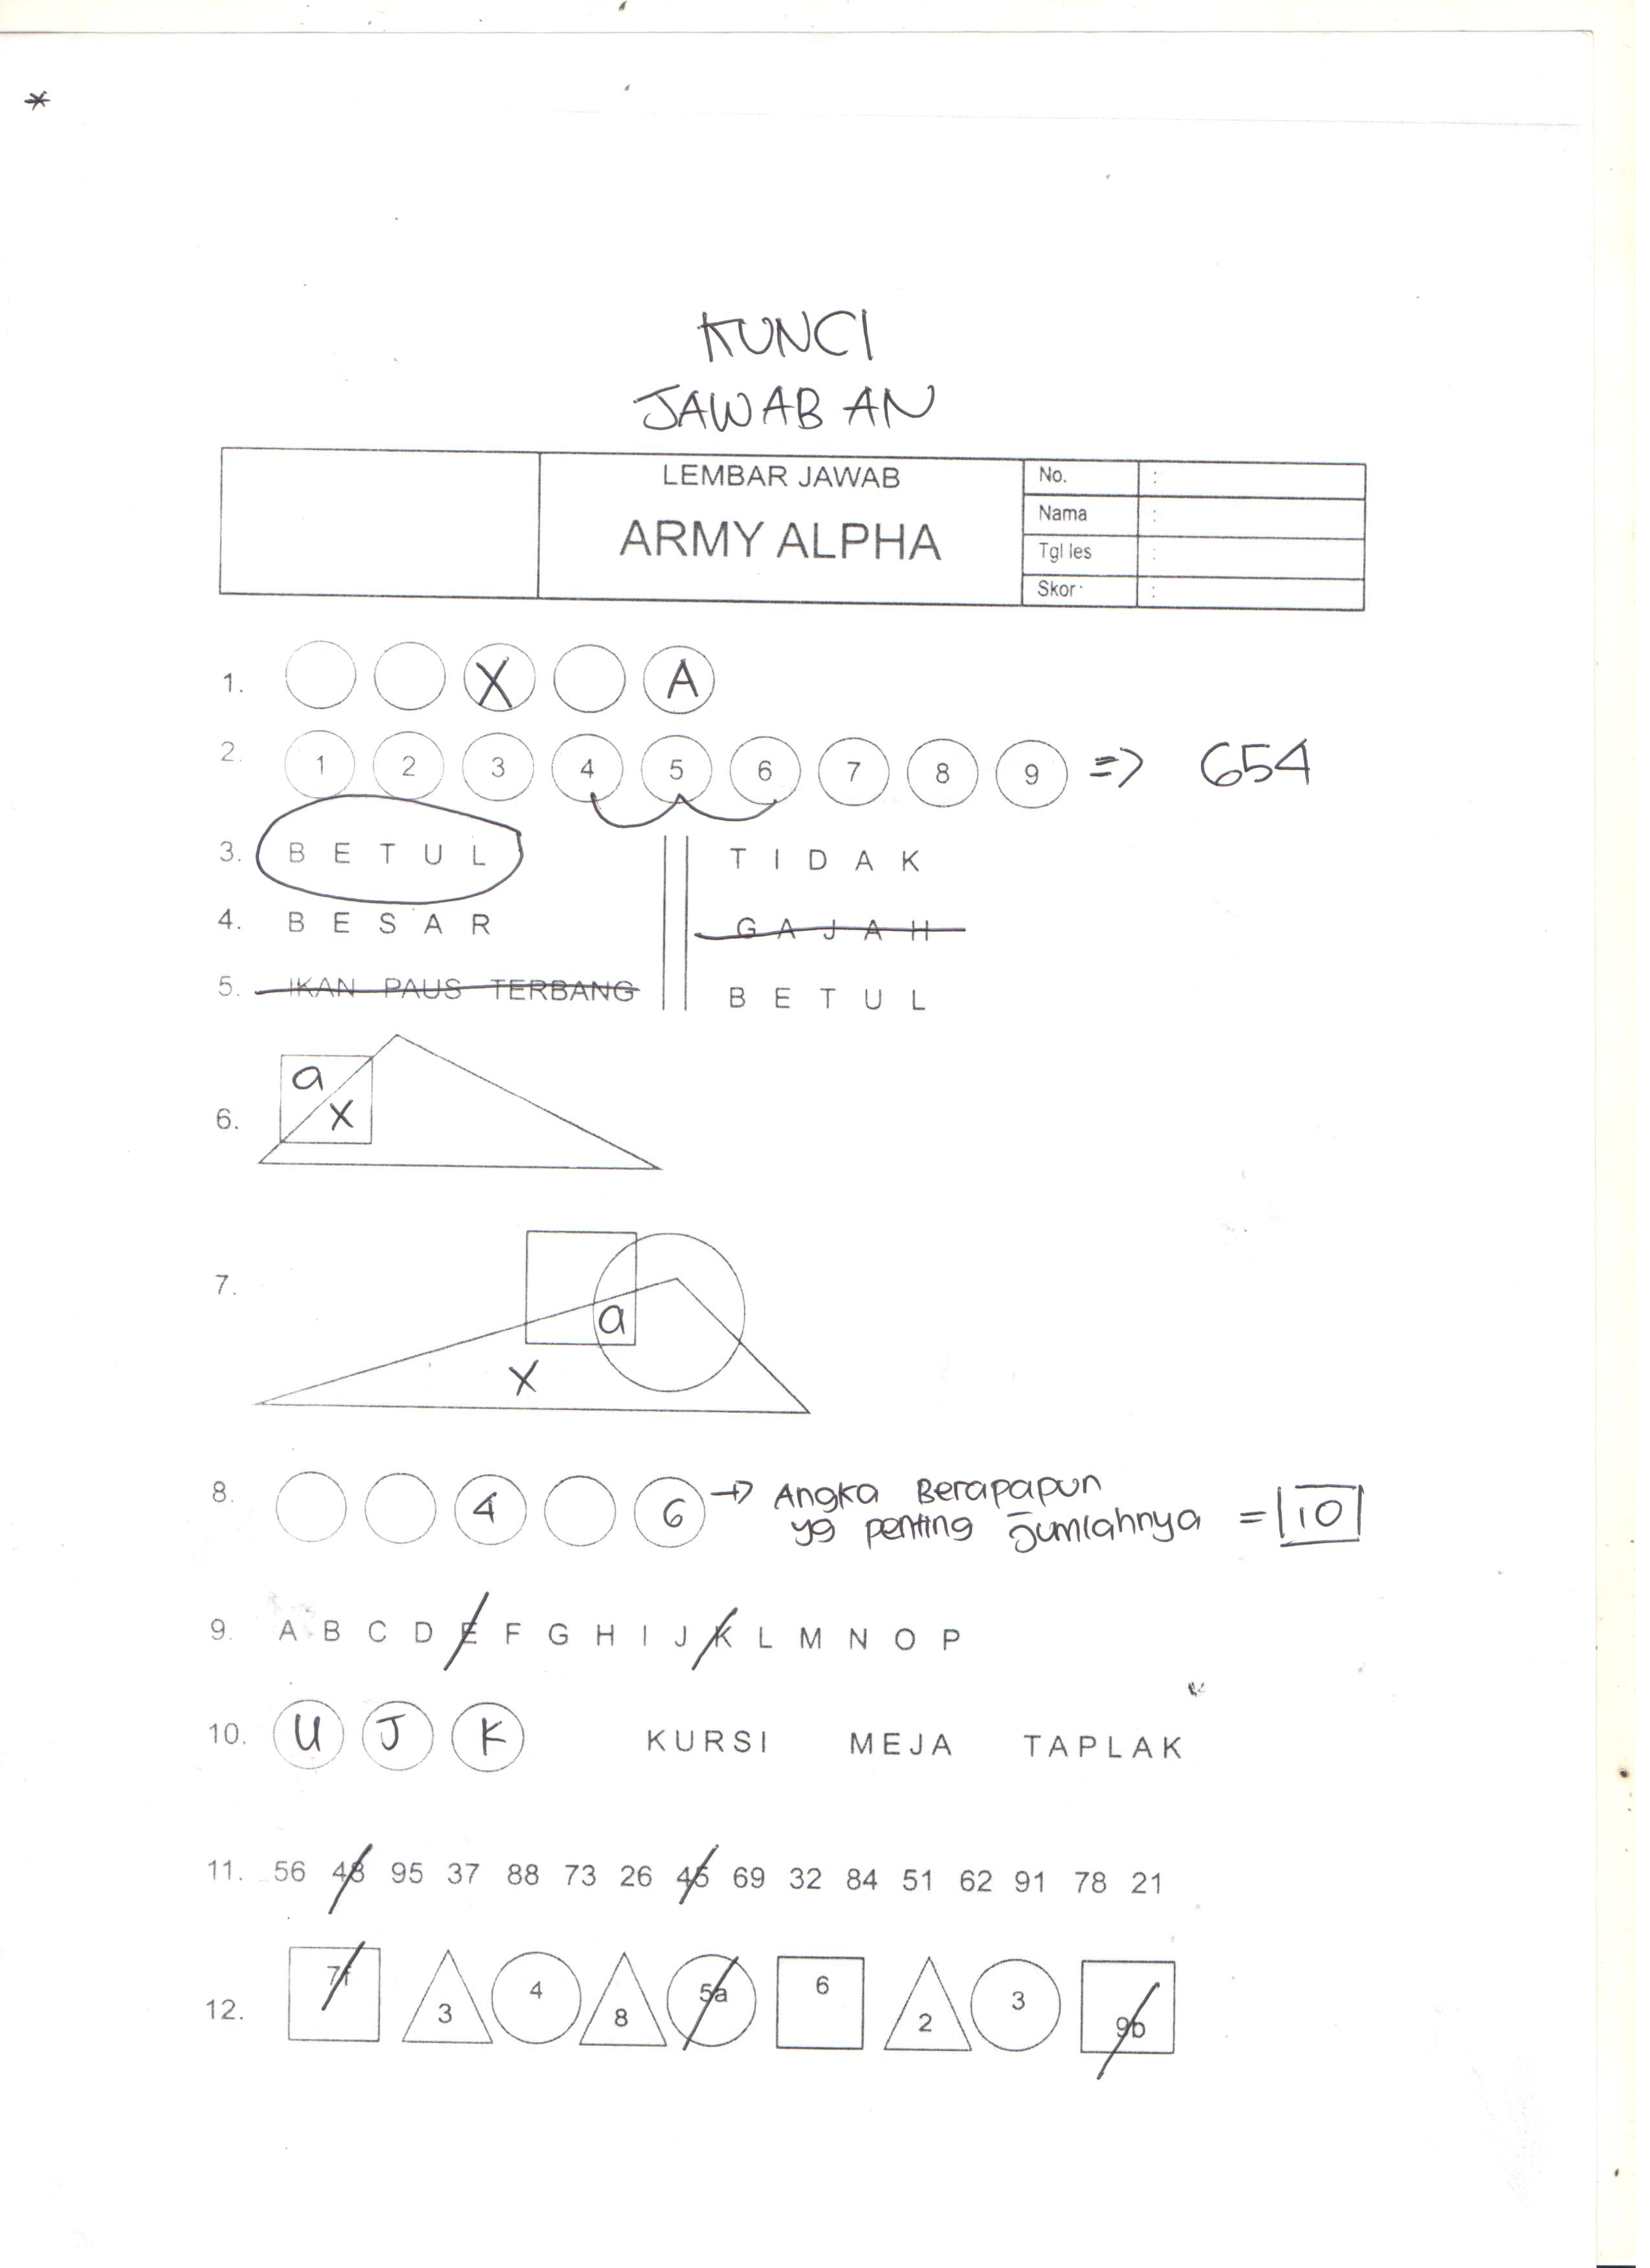 *
KUNCI
JAWABAN
LEMBAR JAWAB
ARMY ALPHA
No. :
Nama :
Tgl les :
Skor :
1. X A
2. 1 2 3 4 5 6 7 8 9 => 654
3. B E T U L T I D A K
4. B E S A R G A J A H
5. IKAN PAUS TERBANG B E T U L
a
6. X
7.
a
X
8. 4 6 → Angka Berapapun
yg penting Jumlahnya = 10
9. A B C D E F G H I J K L M N O P
10. U J K KURSI MEJA TAPLAK
11. 56 48 95 37 88 73 26 45 69 32 84 51 62 91 78 21
12. 7f 3 4 8 5a 6 2 3 9b